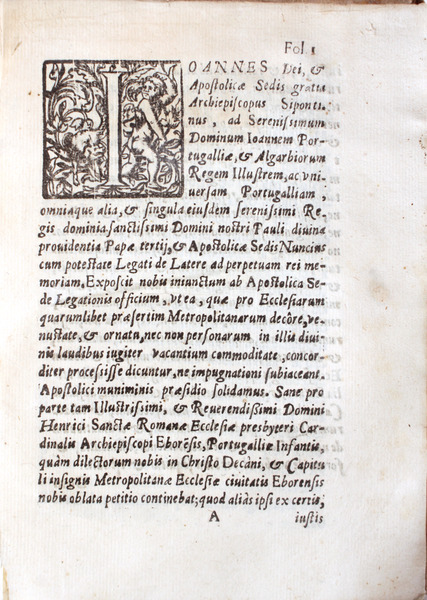 Fol 1
IOANNES Dei, &
Apostolicæ Sedis gratia
Archiepiscopus Siponti-
nus, ad Serenissimum
Dominum Ioannem Por-
tugalliæ, & Algarbiorum
Regem Illustrem, ac vni-
uersam Portugalliam,
omniaque alia, & singula eiusdem serenissimi Re-
gis dominia. sanctissimi Domini nostri Pauli diuina
prouidentia Papæ tertij, & Apostolicæ Sedis Nuncius
cum potestate Legati de Latere ad perpetuam rei me-
moriam, Exposcit nobis iniunctum ab Apostolica Se-
de Legationis officium, vt ea, quæ pro Ecclesiarum
quarumlibet præsertim Metropolitanarum decôre, ve-
nustate, & ornatu, nec non personarum in illis diui-
nis laudibus iugiter vacantium commoditate, concor-
diter processisse dicuntur, ne impugnationi subiaceant,
Apostolici muniminis præsidio solidamus. Sane pro
parte tam Illustrissimi, & Reuerendissimi Domini
Henrici Sanctæ Romanæ Ecclesiæ presbyteri Car-
dinalis Archiepiscopi Eborẽsis, Portugalliæ Infantis,
quàm dilectorum nobis in Christo Decàni, & Capitu
li insignis Metropolitanæ Ecclesiæ ciuitatis Eborensis
nobis oblata petitio continebat; quod aliàs ipsi ex certis,
A iustis